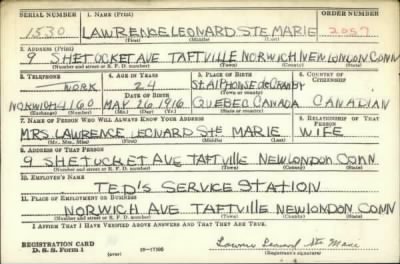 SERIAL NUMBER 1. NAME (Print) ORDER NUMBER
1530 LAWRENCE LEONARD STE MARIE 2057
(First) (Middle) (Last)
2. ADDRESS (Print)
9 SHETUCKET AVE TAFTVILLE NORWICH NEW LONDON CONN
(Number and street or R. F. D. number) (Town) (County) (State)
3. TELEPHONE 4. AGE IN YEARS 5. PLACE OF BIRTH 6. COUNTRY OF CITIZENSHIP
WORK 24 ST. ALPHONSE DE GRANBY
DATE OF BIRTH (Town or county)
NORWICH 4160 MAY 26 1916 QUEBEC CANADA CANADIAN
(Exchange) (Number) (Mo.) (Day) (Yr.) (State or country)
7. NAME OF PERSON WHO WILL ALWAYS KNOW YOUR ADDRESS 8. RELATIONSHIP OF THAT PERSON
MRS LAWRENCE LEONARD STE MARIE WIFE
(Mr., Mrs., Miss) (First) (Middle) (Last)
9. ADDRESS OF THAT PERSON
9 SHETUCKET AVE TAFTVILLE NEW LONDON CONN
(Number and street or R. F. D. number) (Town) (County) (State)
10. EMPLOYER'S NAME
TED'S SERVICE STATION
11. PLACE OF EMPLOYMENT OR BUSINESS
NORWICH AVE TAFTVILLE NEW LONDON CONN
(Number and street or R. F. D. number) (Town) (County) (State)
I AFFIRM THAT I HAVE VERIFIED ABOVE ANSWERS AND THAT THEY ARE TRUE.
REGISTRATION CARD
D. S. S. Form 1 (over) Lawrence Leonard Ste Marie
(Registrant's signature)